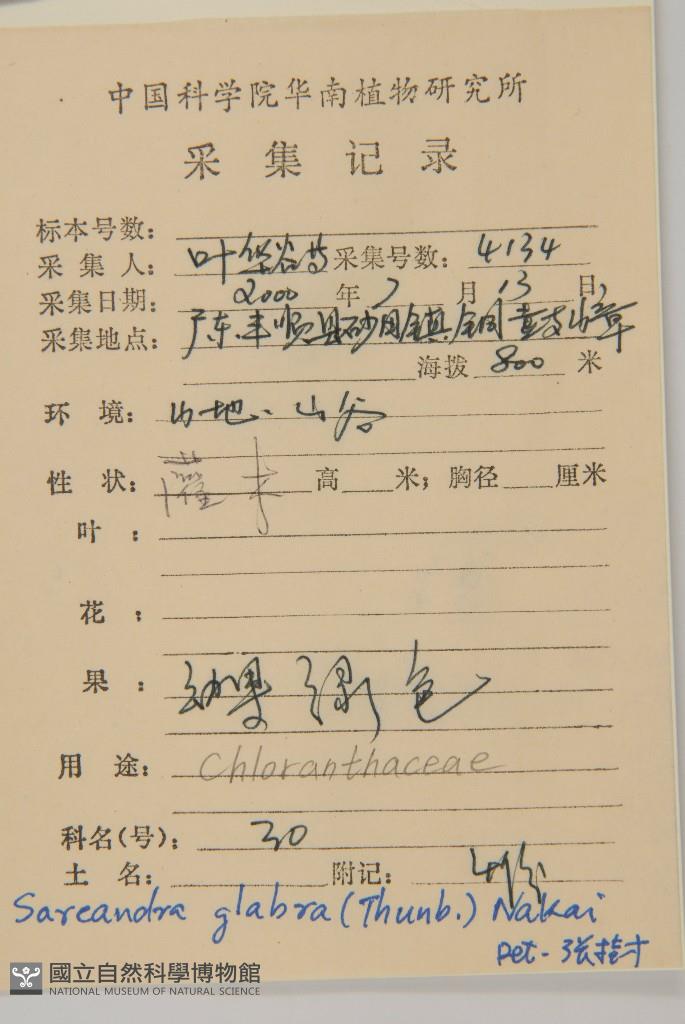 中国科学院华南植物研究所
采集记录
标本号数:
采集人: 叶华谷等 采集号数: 4134
采集日期: 2000 年 7 月 13 日,
采集地点: 广东丰顺县砂田镇铜鼓嶂
海拨 800 米
环境: 山地、山谷
性状: 灌木 高 米; 胸径 厘米
叶:
花:
果: 幼果绿色
用途: Chloranthaceae
科名(号): 30
土名: 附记: 4份
Sarcandra glabra (Thunb.) Nakai
Det-张桂才
國立自然科學博物館
NATIONAL MUSEUM OF NATURAL SCIENCE